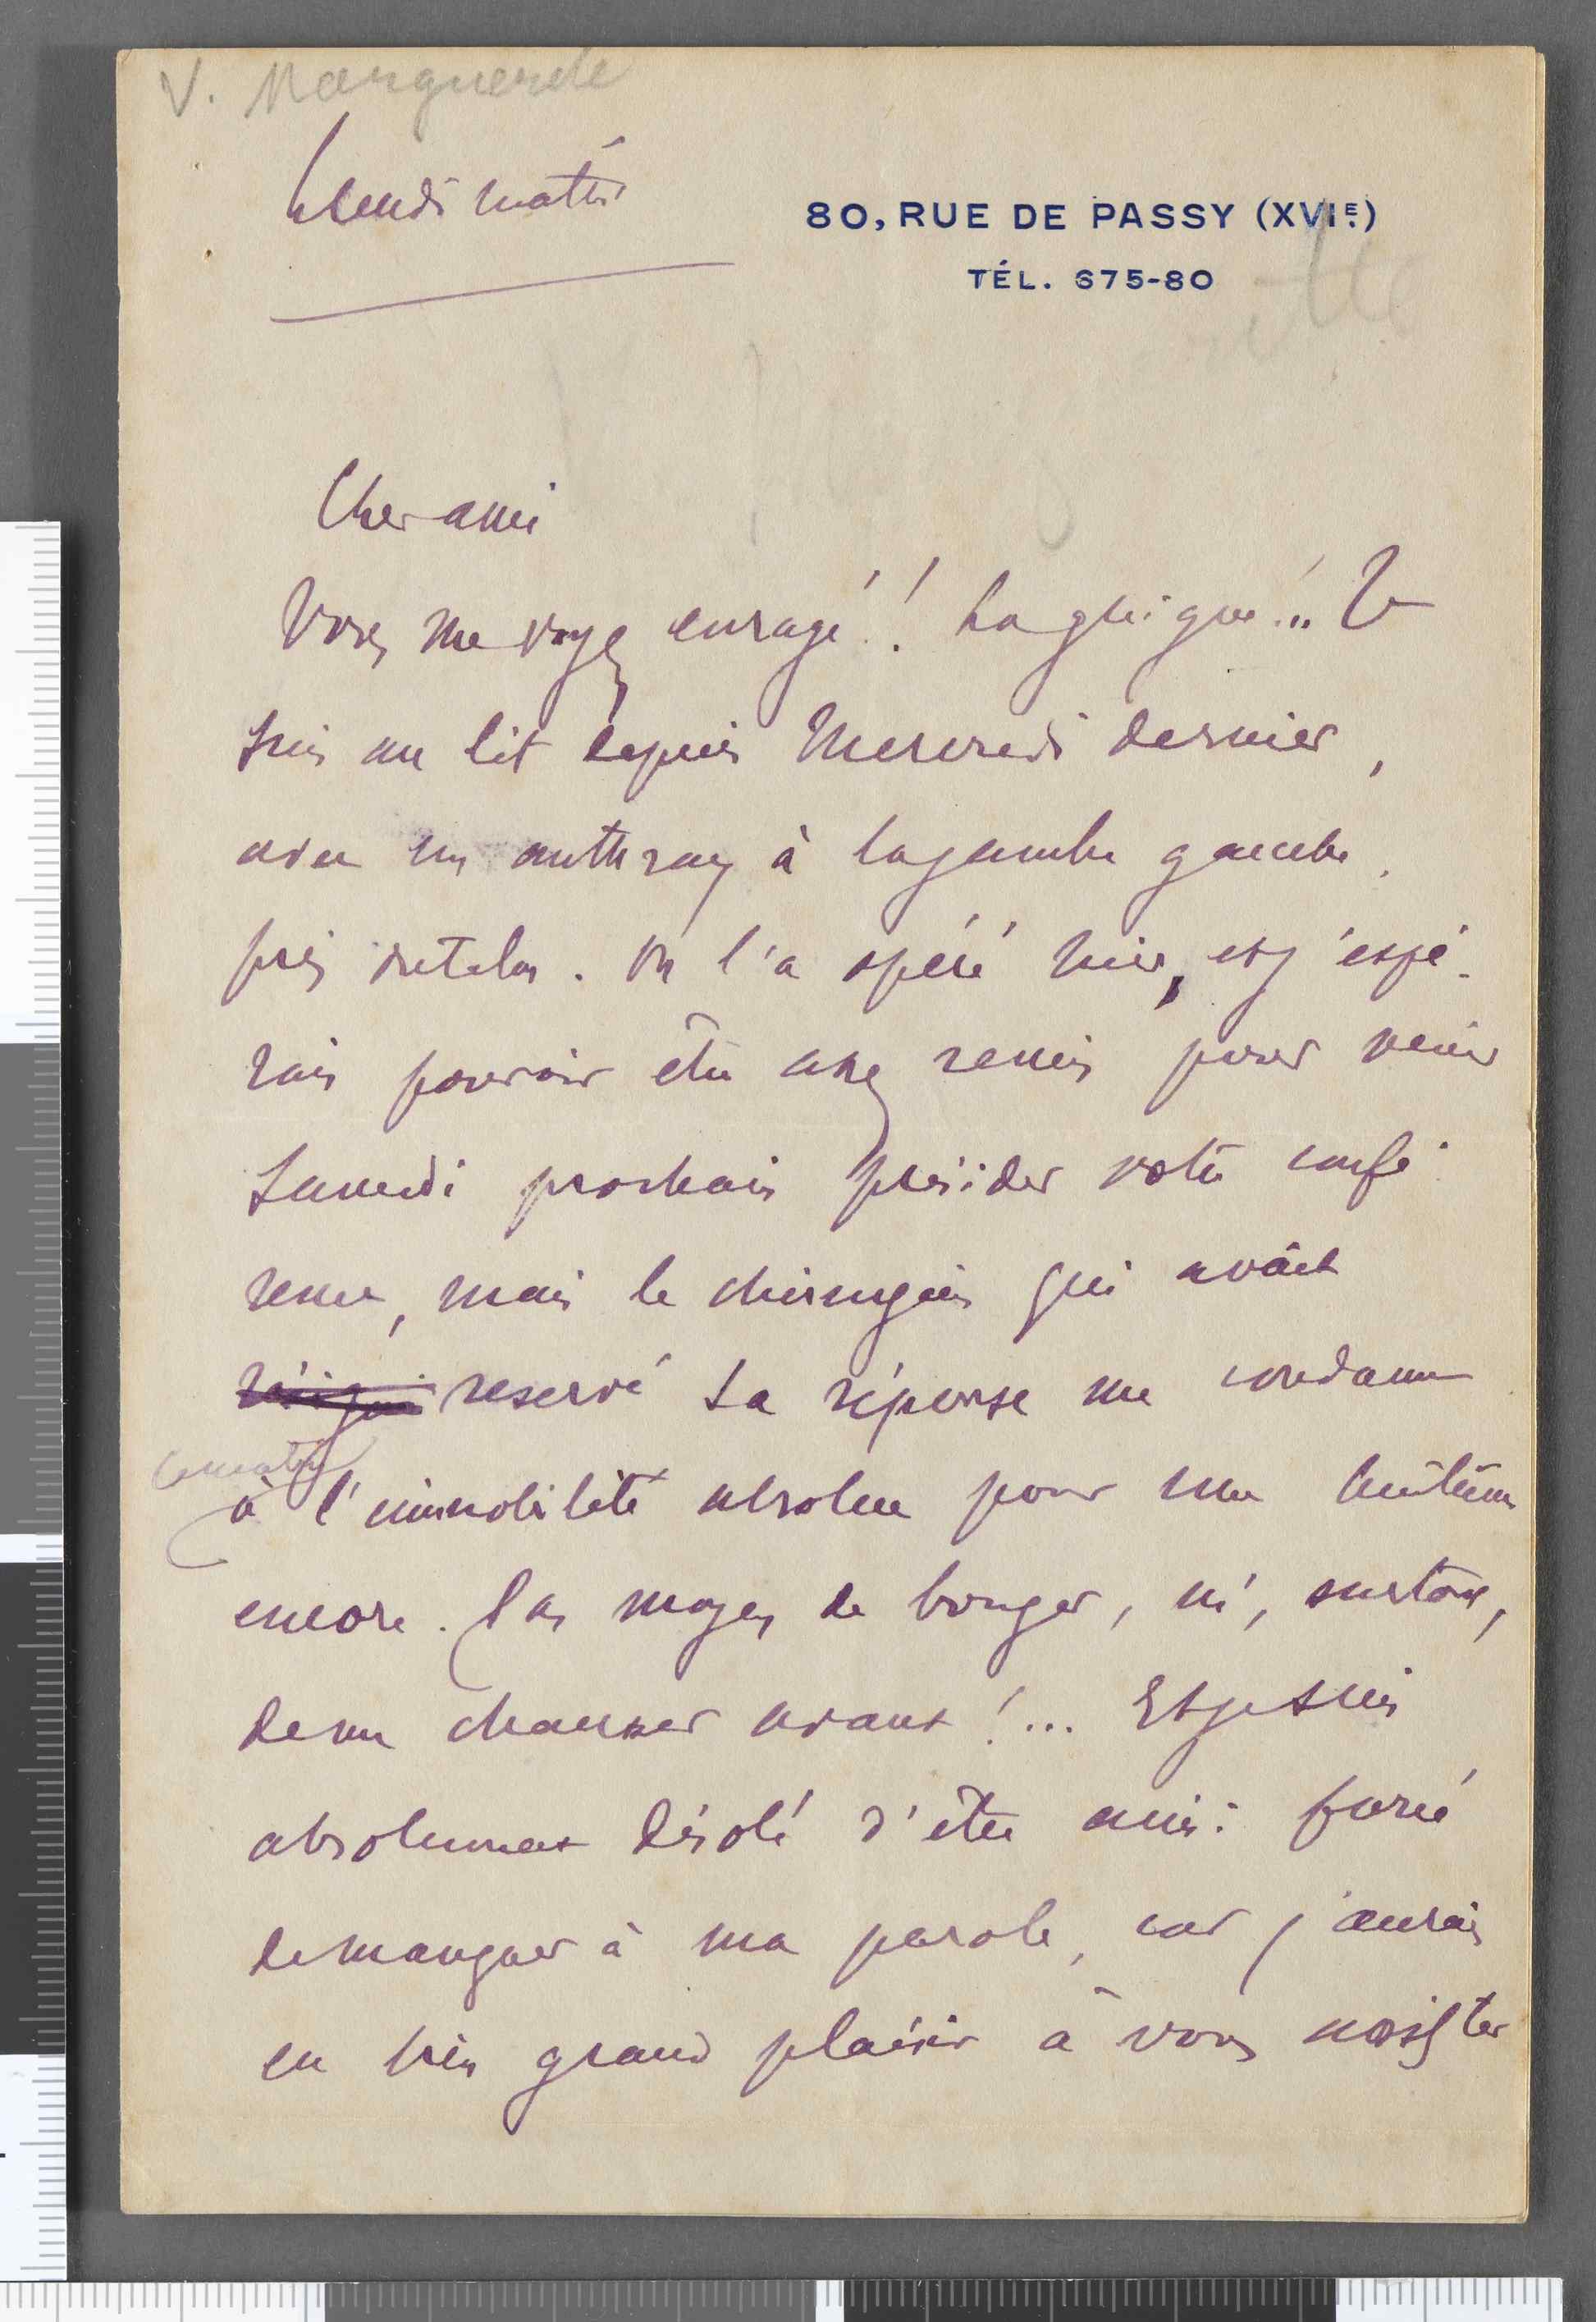 V. Marguerite
Lundi matin
80, RUE DE PASSY (XVIE.)
TÉL. 675-80
Cher ami
Vous me voyez enragé ! La guigne... Je
suis au lit depuis Mercredi dernier,
avec un anthrax à la jambe gauche,
près du talon. On l'a opéré hier, et j'espé-
rais pouvoir être assez remis pour venir
Samedi prochain présider votre confé-
rence, mais le chirurgien qui avait
reservé sa réponse me condamne
ce matin
à l'immobilité absolue pour une huitaine
encore. Pas moyen de bouger, ni, surtout,
de me chausser avant !... Et je suis
absolument désolé d'être ainsi forcé
de manquer à ma parole, car j'aurais
eu bien grand plaisir à vous assister